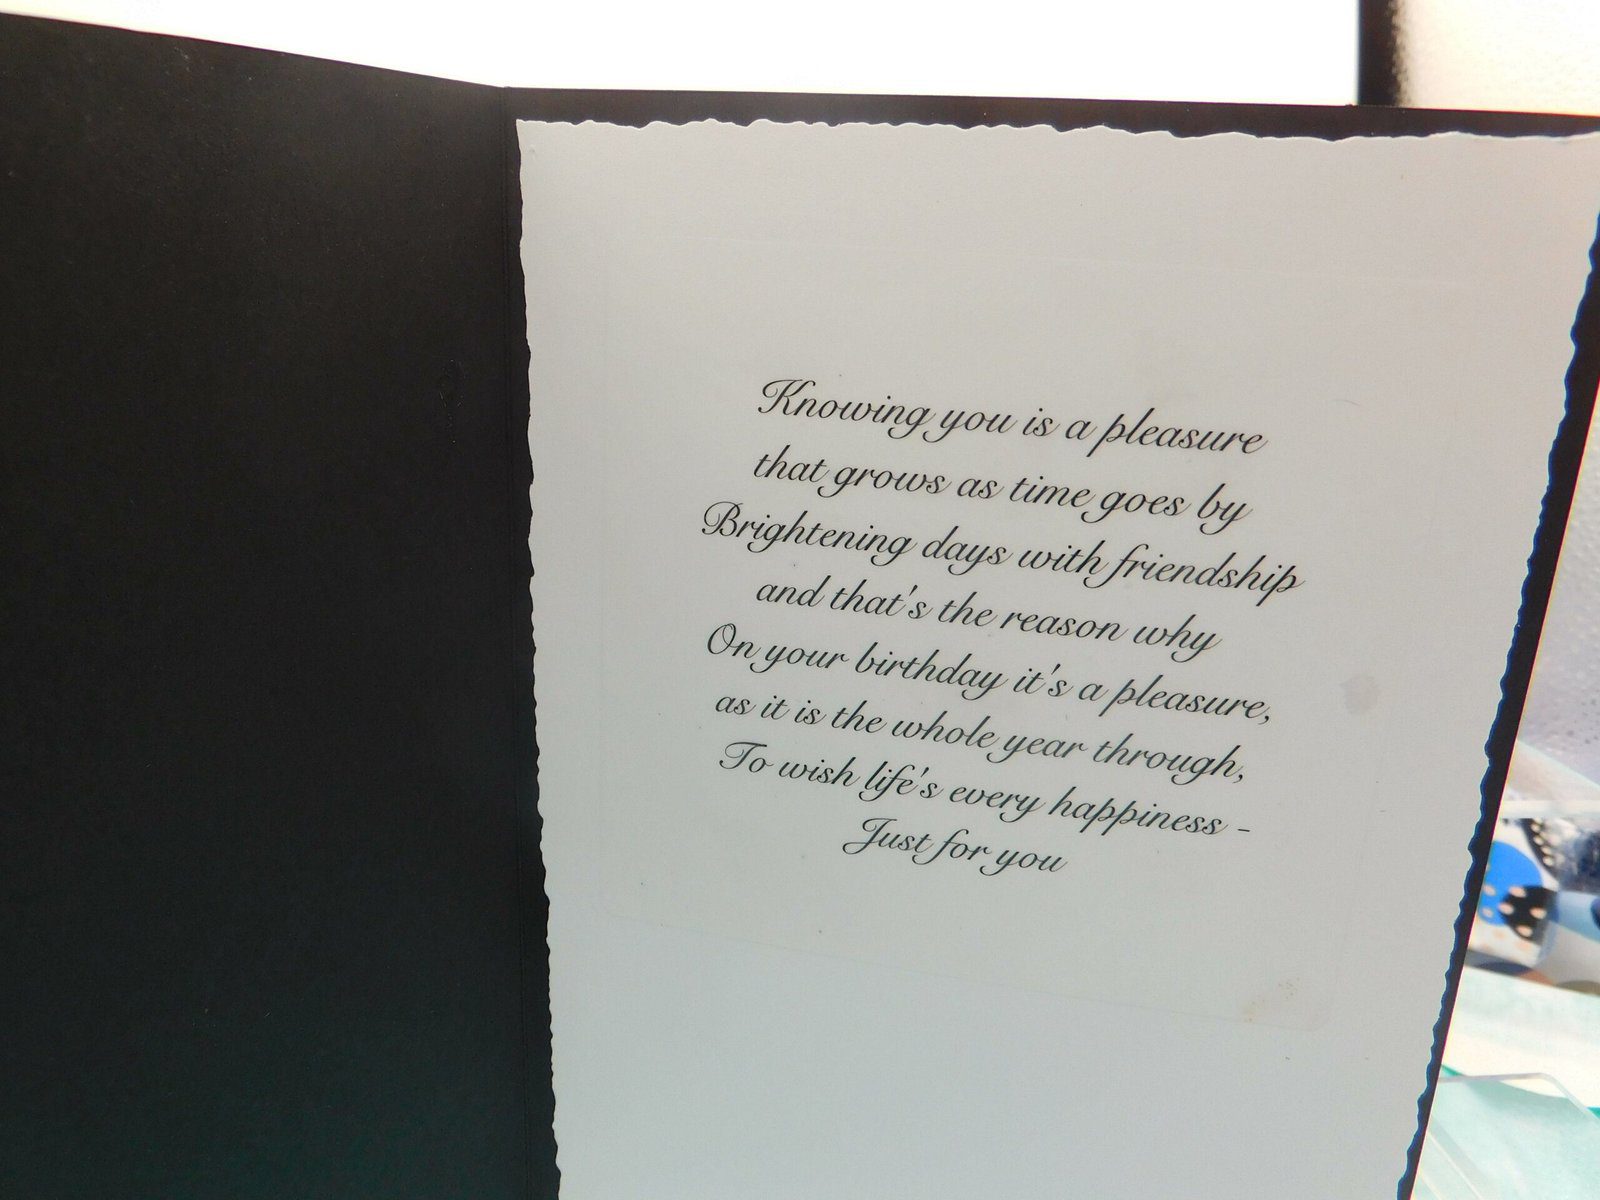 Knowing you is a pleasure
that grows as time goes by
Brightening days with friendship
and that's the reason why
On your birthday it's a pleasure,
as it is the whole year through,
To wish life's every happiness -
Just for you